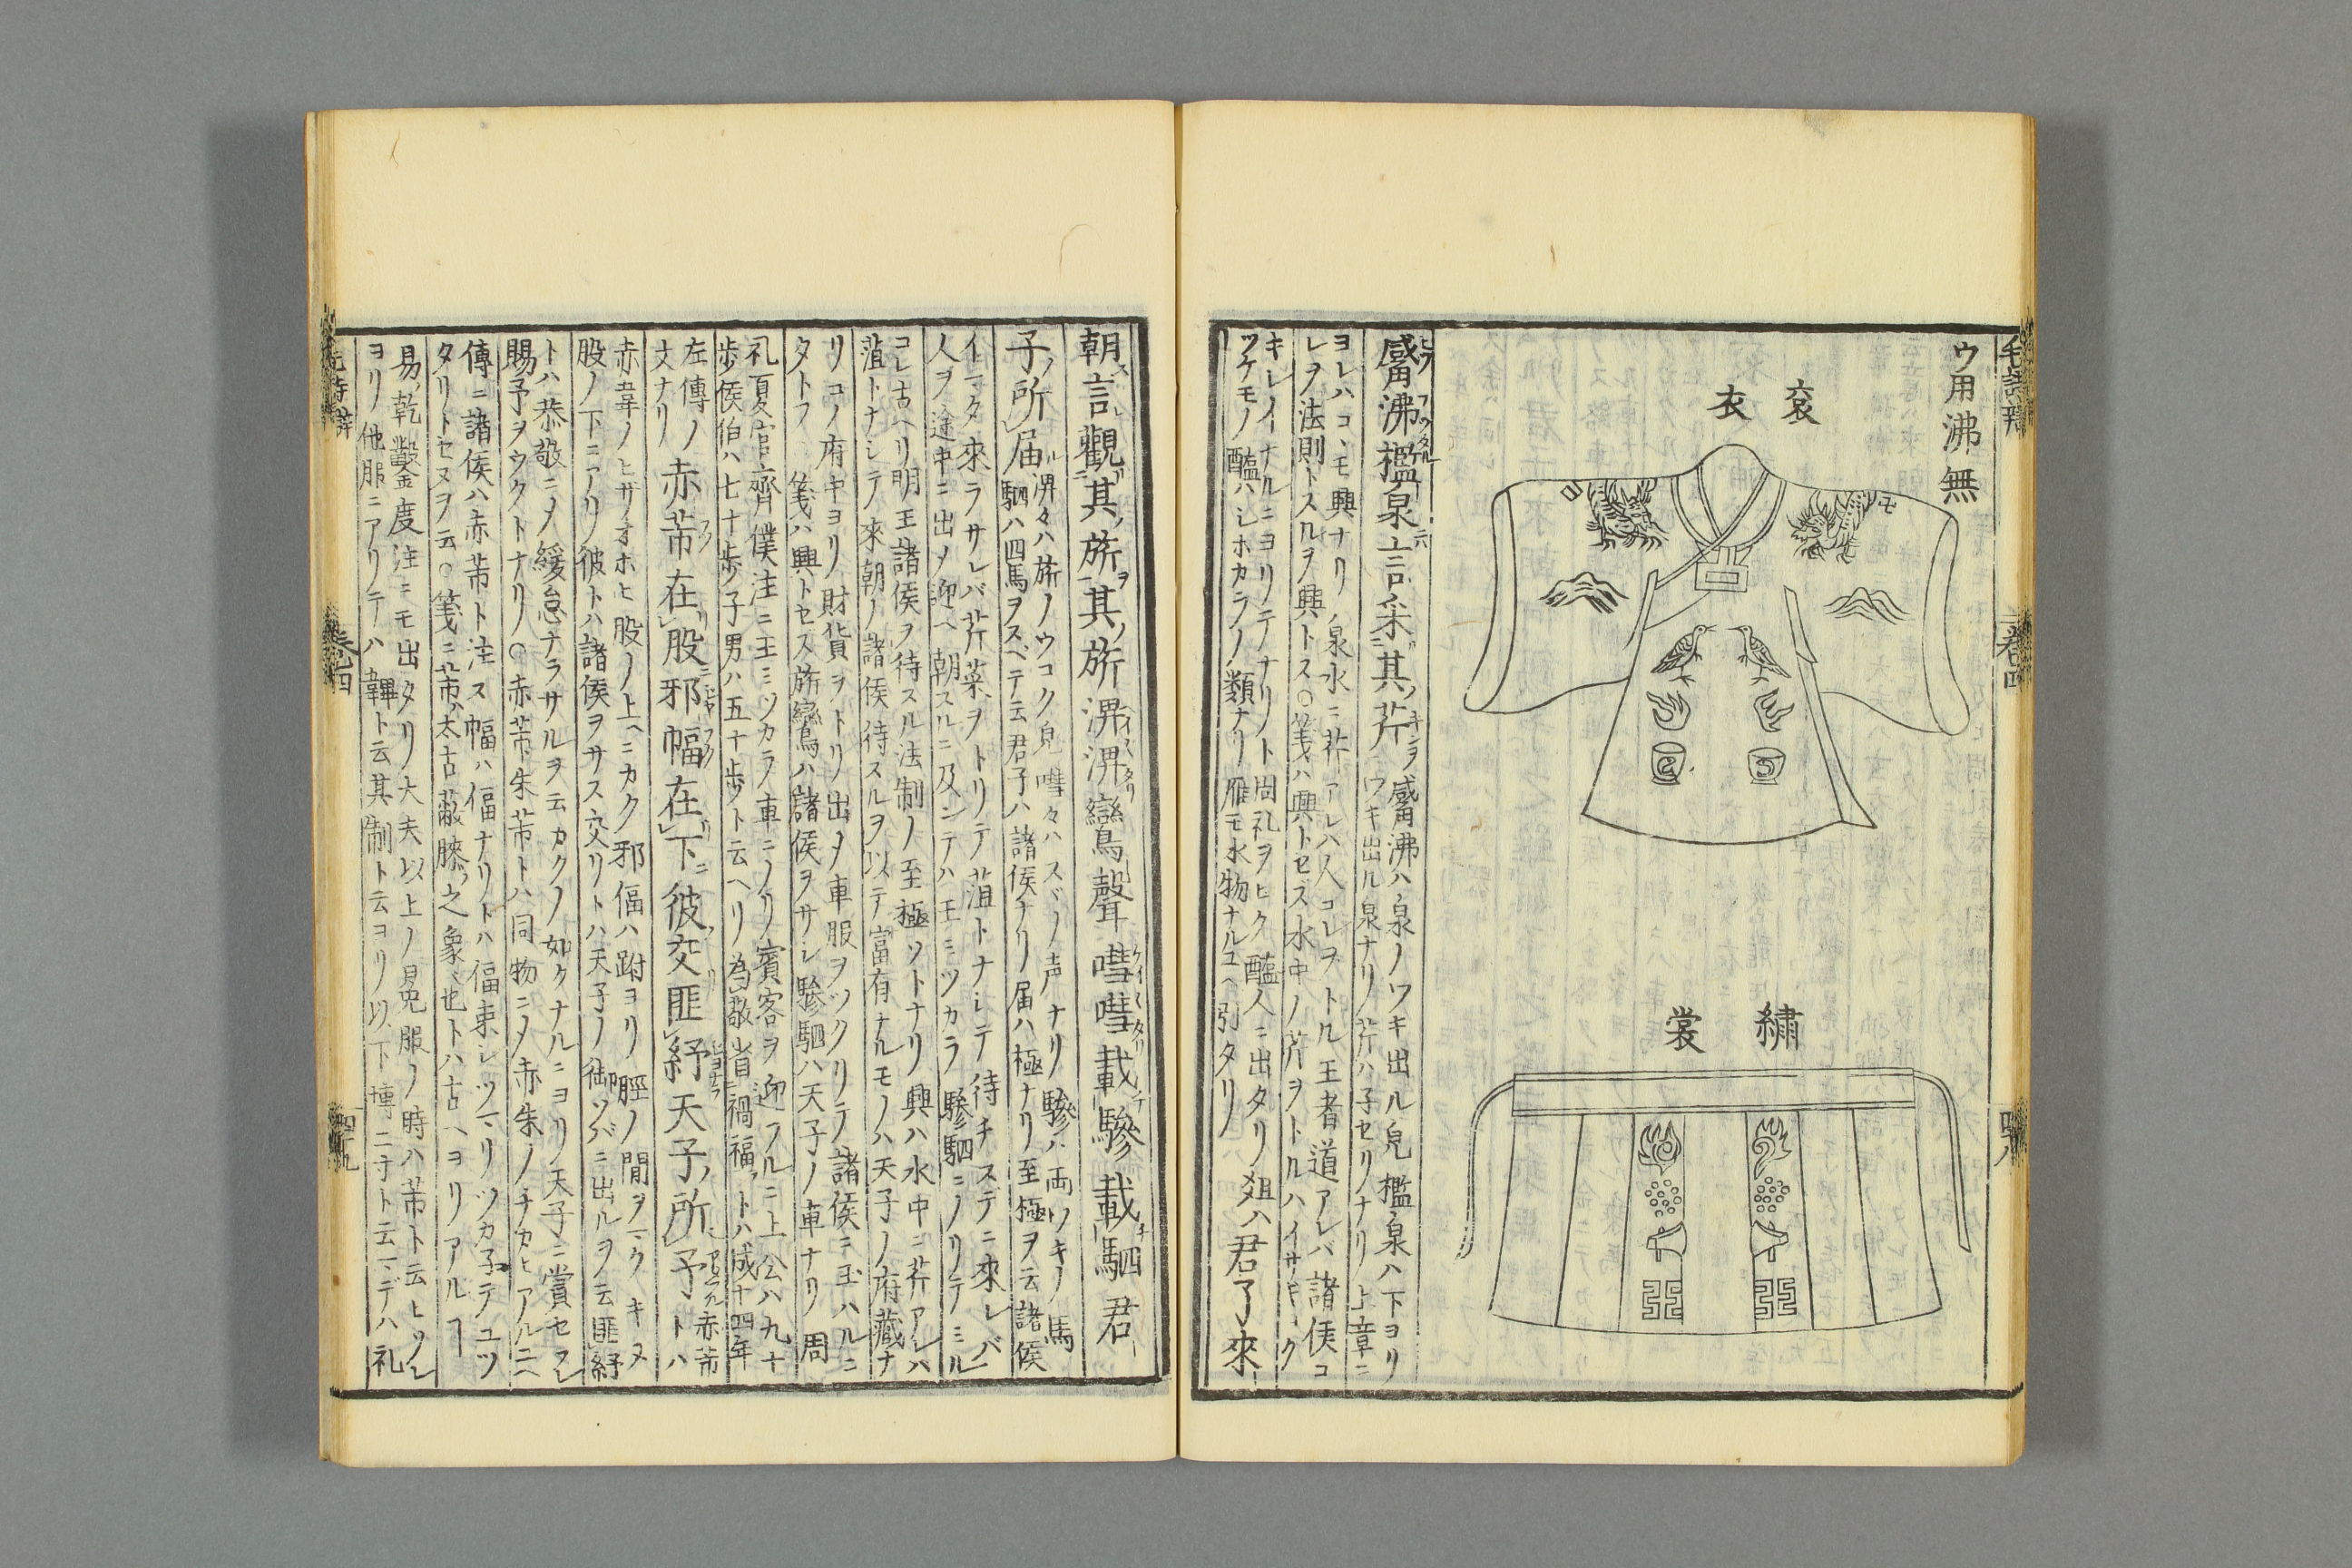 ウ用沸無
袞衣
繡裳
觱沸檻泉言采其芹
觱沸ハ泉ノワキ出ル皃檻泉ハ下ヨリ
ウキ出ル泉ナリ芹ハ子セリナリ上章ニ
ヨレハコヽモ興ナリ泉水ニ芹アレハ人コレヲトル王者道アレバ諸侯コ
レヲ法則トスルヲ興トス○箋ハ興トセズ水中ノ芹ヲトルハイサギヨク
キレイナルニヨリテナリト周礼ヲヒク醢人ニ出タリ
ツケモノ醢ハシホカラノ類ナリ雁モ水物ナルユヘ引タリ
君子來
朝言觀其旂其旂淠淠鸞聲嘒嘒載驂載駟君
子所届
淠々ハ旂ノウコク皃嘒々ハスヾノ声ナリ驂ハ両ワキノ馬
駟ハ四馬ヲスベテ云君子ハ諸侯ナリ届ハ極ナリ至極ヲ云諸侯
イマタ來ラサレバ芹菜ヲトリテ菹トナシテ待チスデニ來レバ
人ヲ途中ニ出メ迎ヘ朝スルニ及ンテハ王ミツカラ驂駟ニノリテミル
コレ古ヘノ明王諸侯ヲ待スル法制ノ至極ソトナリ興ハ水中ニ芹アレハ
菹トナシテ來朝ノ諸侯待スルヲ以テ富有ナルモノハ天子ノ府藏ナ
リコノ府中ヨリ財貨ヲトリ出メ車服ヲツクリテ諸侯ニ玉ハルニ
タトフ箋ハ興トセス旂鸞ハ諸侯ヲサシ驂駟ハ天子ノ車ナリ周
礼夏官齊僕注ニ王ミツカラ車ニノリ賓客ヲ迎フルニ上公ハ九十
歩侯伯ハ七十歩子男ハ五十歩ト云ヘリ為敬省禍福トハ成十四年
左傳ノ
文ナリ
赤芾在股邪幅在下彼交匪紓天子所予
赤芾
トハ
赤韋ノヒサオホヒ股ノ上ヘニカク邪偪ハ跗ヨリ脛ノ間ヲマクキヌ
股ノ下ニアリ彼トハ諸侯ヲサス交リトハ天子ノ御ソバニ出ルヲ云匪紓
トハ恭敬ニメ緩怠ナラサルヲ云カクノ如クナルニヨリ天子ニ賞セラレ
賜予ヲウクトナリ○赤芾朱芾トハ同物ニメ赤朱ノチカヒアルニヘ
傳ニ諸侯ハ赤芾ト注ス幅ハ偪ナリトハ偪束シツマリツカ子テユツ
タリトセヌヲ云○箋ニ芾太古蔽膝之象也トハ古ヘヨリアルヿ
易乾鑿度注ニモ出タリ大夫以上ノ冕服ノ時ハ芾ト云ヒソレ
ヨリ他服ニアリテハ韠ト云其制ト云ヨリ以下博二寸ト云マデハ礼
卷四